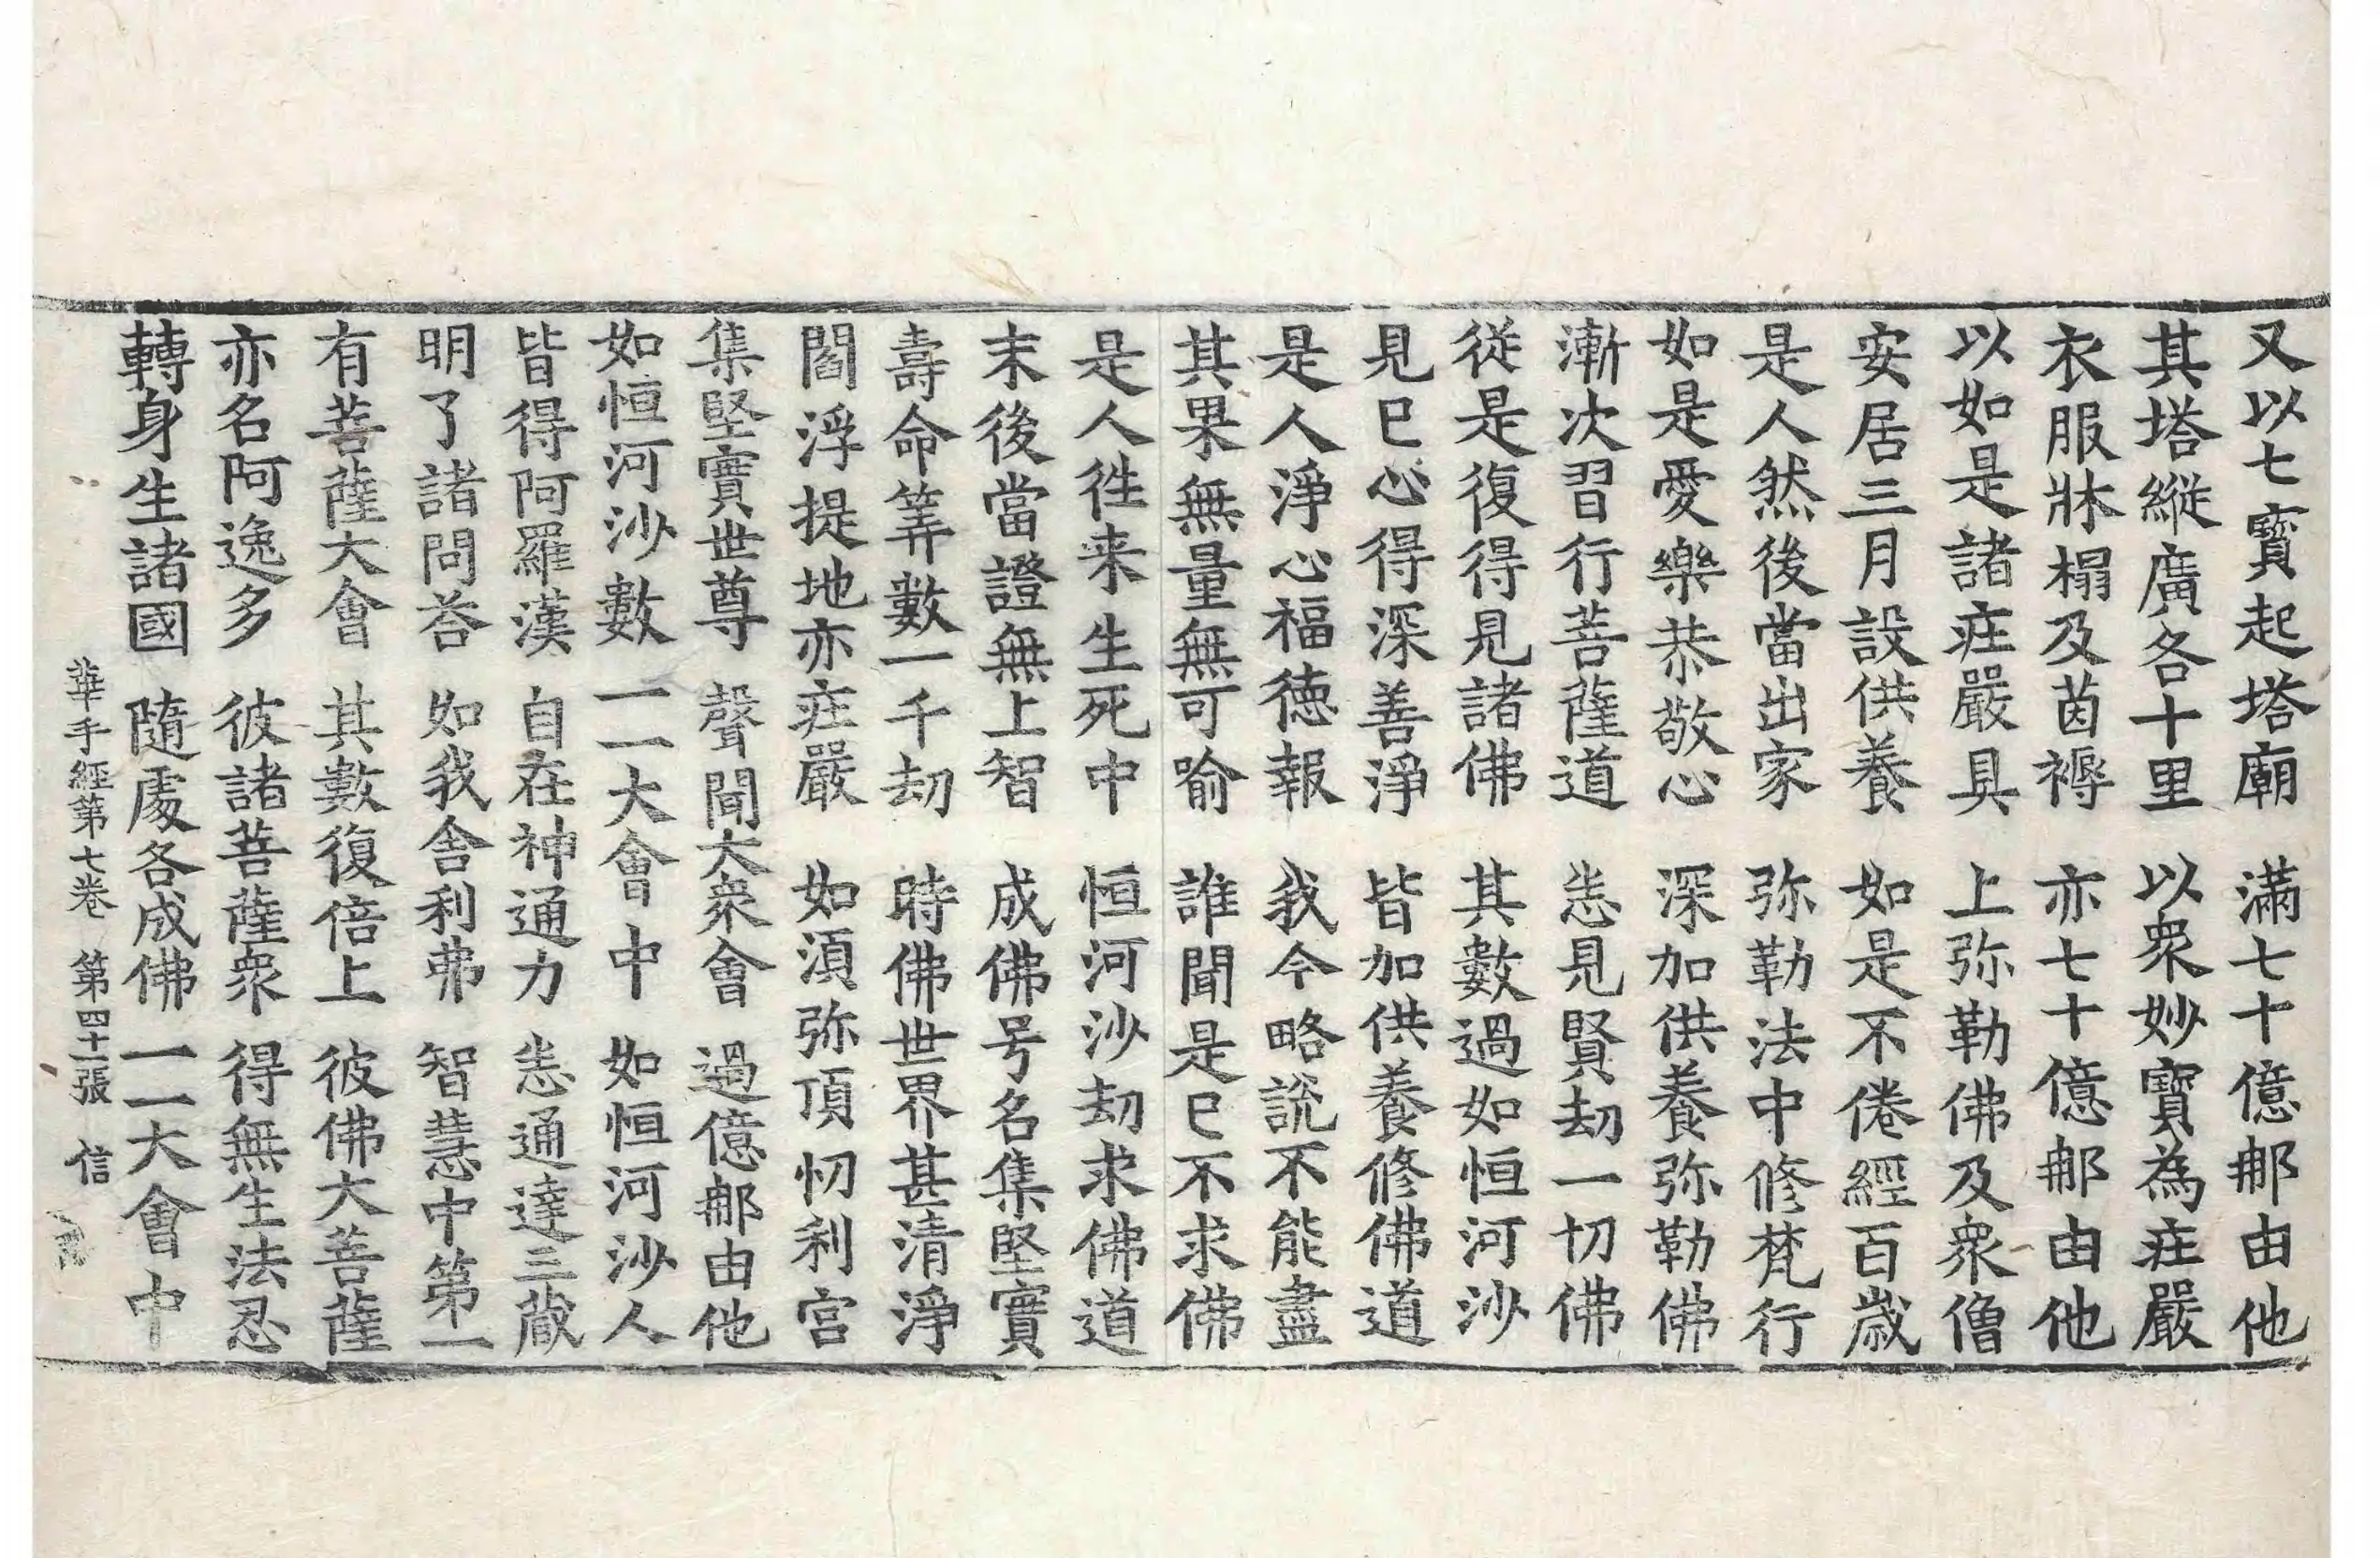 又以七寶起塔廟　滿七十億𨙻由他
其塔縱廣各十里　以衆妙寶為疘嚴
衣服牀榻及茵褥　亦七十億𨙻由他
以如是諸疘嚴具　上弥勒佛及衆僧
安居三月設供養　如是不倦經百歲
是人然後當出家　弥勒法中修梵行
如是愛樂恭敬心　深加供養弥勒佛
漸次習行菩薩道　悉見賢劫一切佛
從是復得見諸佛　其數過如恒河沙
見已心得深善淨　皆加供養修佛道
是人淨心福德報　我今略說不能盡
其果無量無可喻　誰聞是已不求佛
是人徃来生死中　恒河沙劫求佛道
末後當證無上智　成佛号名集堅實
壽命筭數一千劫　時佛世界甚清淨
閻浮提地亦疘嚴　如湏弥頂忉利宮
集堅實世尊　聲聞大衆會　過億𨙻由他
如恒河沙數　一一大會中　如恒河沙人
皆得阿羅漢　自在神通力　悉通達三藏
明了諸問荅　如我舍利弗　智慧中第一
有菩薩大會　其數復倍上　彼佛大菩薩
亦名阿逸多　彼諸菩薩衆　得無生法忍
轉身生諸國　隨處各成佛　一一大會中
華手經第七卷　第四十二張　信